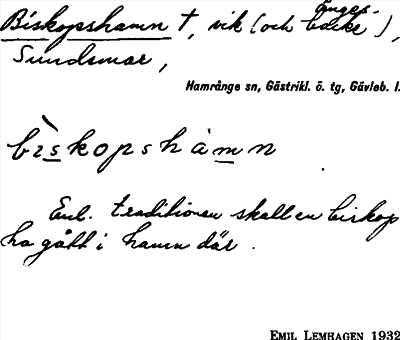 Biskopshamn †, vik (och änges-
backe),
Sundsmar,
Hamrånge sn, Gästrikl. ö. tg, Gävleb. l.
bìskopshàmn
Enl. traditionen skall en biskop
ha gått i hamn där.
EMIL LEMHAGEN 1932